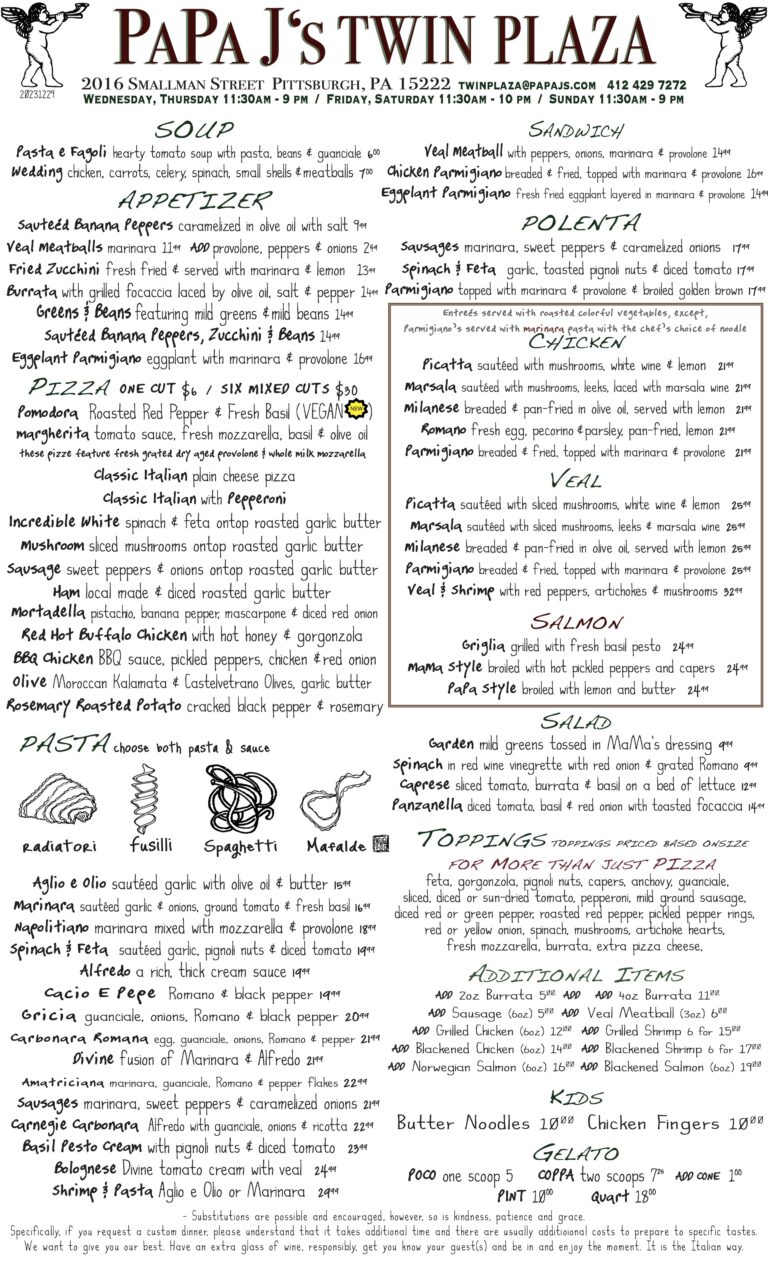 PaPa J's TWIN PLAZA
20231229
2016 Smallman Street Pittsburgh, PA 15222 twinplaza@papajs.com 412 429 7272
Wednesday, Thursday 11:30am - 9 pm / Friday, Saturday 11:30am - 10 pm / Sunday 11:30am - 9 pm
SOUP
Pasta e Fagoli hearty tomato soup with pasta, beans & guanciale 6⁰⁰
Wedding chicken, carrots, celery, spinach, small shells & meatballs 7⁰⁰
APPETIZER
Sauteéd Banana Peppers caramelized in olive oil with salt 9⁹⁹
Veal Meatballs marinara 11⁹⁹ ADD provolone, peppers & onions 2⁹⁹
Fried Zucchini fresh fried & served with marinara & lemon 13⁹⁹
Burrata with grilled focaccia laced by olive oil, salt & pepper 14⁹⁹
Greens & Beans featuring mild greens & mild beans 14⁹⁹
Sautéed Banana Peppers, Zucchini & Beans 14⁹⁹
Eggplant Parmigiano eggplant with marinara & provolone 16⁹⁹
PIZZA ONE CUT $6 / SIX MIXED CUTS $30
Pomodora Roasted Red Pepper & Fresh Basil (VEGAN NEW)
Margherita tomato sauce, fresh mozzarella, basil & olive oil
these pizze feature fresh grated dry aged provolone & whole milk mozzarella
Classic Italian plain cheese pizza
Classic Italian with Pepperoni
Incredible White spinach & feta ontop roasted garlic butter
Mushroom sliced mushrooms ontop roasted garlic butter
Sausage sweet peppers & onions ontop roasted garlic butter
Ham local made & diced roasted garlic butter
Mortadella pistachio, banana pepper, mascarpone & diced red onion
Red Hot Buffalo Chicken with hot honey & gorgonzola
BBQ Chicken BBQ sauce, pickled peppers, chicken & red onion
Olive Moroccan Kalamata & Castelvetrano Olives, garlic butter
Rosemary Roasted Potato cracked black pepper & rosemary
PASTA choose both pasta & sauce
radiatori fusilli Spaghetti Mafalde
Aglio e Olio sautéed garlic with olive oil & butter 15⁹⁹
Marinara sautéed garlic & onions, ground tomato & fresh basil 16⁹⁹
Napolitiano marinara mixed with mozzarella & provolone 18⁹⁹
Spinach & Feta sautéed garlic, pignoli nuts & diced tomato 19⁹⁹
Alfredo a rich, thick cream sauce 19⁹⁹
Cacio E Pepe Romano & black pepper 19⁹⁹
Gricia guanciale, onions, Romano & black pepper 20⁹⁹
Carbonara Romana egg, guanciale, onions, Romano & pepper 21⁹⁹
Divine fusion of Marinara & Alfredo 21⁹⁹
Amatriciana marinara, guanciale, Romano & pepper flakes 22⁹⁹
Sausages marinara, sweet peppers & caramelized onions 21⁹⁹
Carnegie Carbonara Alfredo with guanciale, onions & ricotta 22⁹⁹
Basil Pesto Cream with pignoli nuts & diced tomato 23⁹⁹
Bolognese Divine tomato cream with veal 24⁹⁹
Shrimp & Pasta Aglio e Olio or Marinara 29⁹⁹
SANDWICH
Veal Meatball with peppers, onions, marinara & provolone 14⁹⁹
Chicken Parmigiano breaded & fried, topped with marinara & provolone 16⁹⁹
Eggplant Parmigiano fresh fried eggplant layered in marinara & provolone 14⁹⁹
POLENTA
Sausages marinara, sweet peppers & caramelized onions 17⁹⁹
Spinach & Feta garlic, toasted pignoli nuts & diced tomato 17⁹⁹
Parmigiano topped with marinara & provolone & broiled golden brown 17⁹⁹
Entreés served with roasted colorful vegetables, except,
Parmigiano's served with marinara pasta with the chef's choice of noodle
CHICKEN
Picatta sautéed with mushrooms, white wine & lemon 21⁹⁹
Marsala sautéed with mushrooms, leeks, laced with marsala wine 21⁹⁹
Milanese breaded & pan-fried in olive oil, served with lemon 21⁹⁹
Romano fresh egg, pecorino & parsley, pan-fried, lemon 21⁹⁹
Parmigiano breaded & fried, topped with marinara & provolone 21⁹⁹
VEAL
Picatta sautéed with sliced mushrooms, white wine & lemon 25⁹⁹
Marsala sautéed with sliced mushrooms, leeks & marsala wine 25⁹⁹
Milanese breaded & pan-fried in olive oil, served with lemon 25⁹⁹
Parmigiano breaded & fried, topped with marinara & provolone 25⁹⁹
Veal & Shrimp with red peppers, artichokes & mushrooms 32⁹⁹
SALMON
Griglia grilled with fresh basil pesto 24⁹⁹
Mama Style broiled with hot pickled peppers and capers 24⁹⁹
PaPa Style broiled with lemon and butter 24⁹⁹
SALAD
Garden mild greens tossed in MaMa's dressing 9⁹⁹
Spinach in red wine vinegrette with red onion & grated Romano 9⁹⁹
Caprese sliced tomato, burrata & basil on a bed of lettuce 12⁹⁹
Panzanella diced tomato, basil & red onion with toasted focaccia 14⁹⁹
TOPPINGS TOPPINGS PRICED BASED ONSIZE
FOR MORE THAN JUST PIZZA
feta, gorgonzola, pignoli nuts, capers, anchovy, guanciale,
sliced, diced or sun-dried tomato, pepperoni, mild ground sausage,
diced red or green pepper, roasted red pepper, pickled pepper rings,
red or yellow onion, spinach, mushrooms, artichoke hearts,
fresh mozzarella, burrata, extra pizza cheese,
ADDITIONAL ITEMS
ADD 2oz Burrata 5⁰⁰ ADD ADD 4oz Burrata 11⁰⁰
ADD Sausage (6oz) 5⁰⁰ ADD Veal Meatball (3oz) 6⁰⁰
ADD Grilled Chicken (6oz) 12⁰⁰ ADD Grilled Shrimp 6 for 15⁰⁰
ADD Blackened Chicken (6oz) 14⁰⁰ ADD Blackened Shrimp 6 for 17⁰⁰
ADD Norwegian Salmon (6oz) 16⁰⁰ ADD Blackened Salmon (6oz) 19⁰⁰
KIDS
Butter Noodles 10⁰⁰ Chicken Fingers 10⁰⁰
GELATO
POCO one scoop 5 COPPA two scoops 7²⁵ ADD CONE 1⁰⁰
PINT 10⁰⁰ Quart 18⁰⁰
- Substitutions are possible and encouraged, however, so is kindness, patience and grace.
Specifically, if you request a custom dinner, please understand that it takes additional time and there are usually additioional costs to prepare to specific tastes.
We want to give you our best. Have an extra glass of wine, responsibly, get you know your guest(s) and be in and enjoy the moment. It is the Italian way.